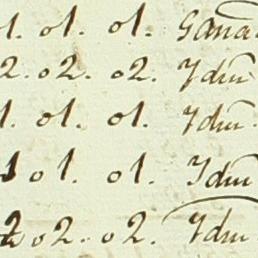 1. o1. o1. Gana.
2. o2. o2. Idm
1. o1. o1. Idm
1 o1. o1. Idm
2 o2. o2. Idm